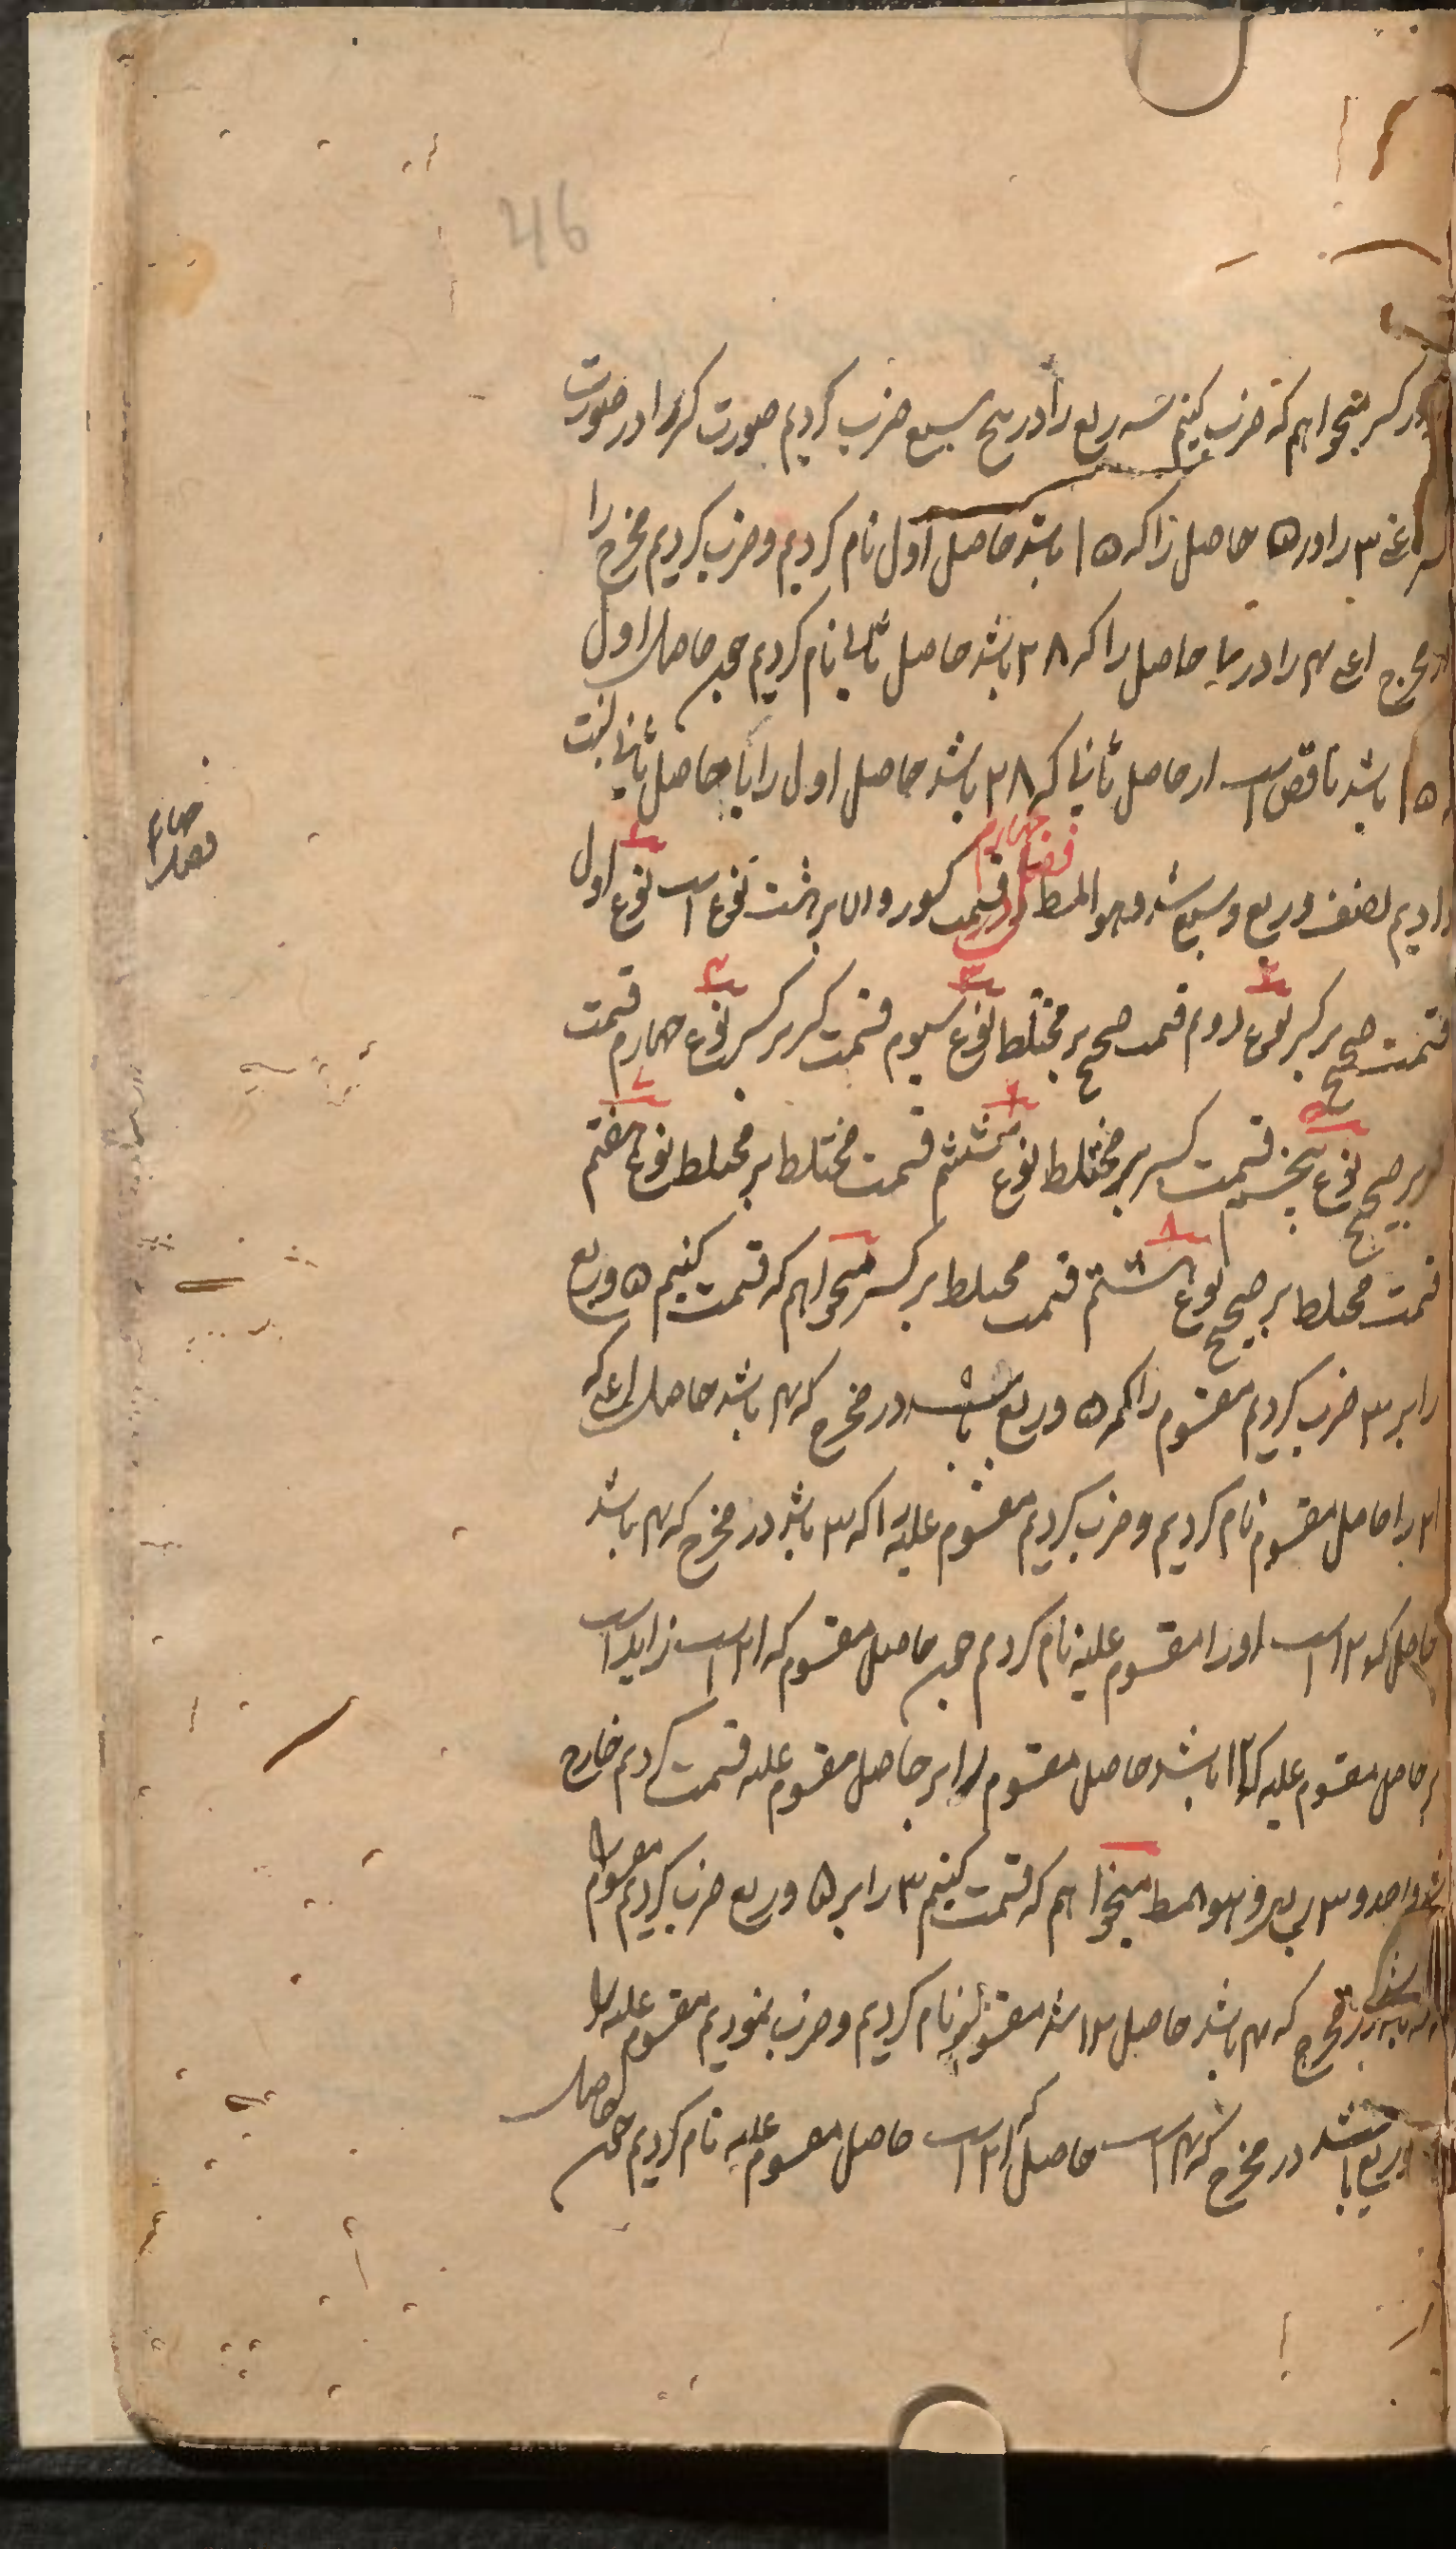 46
در کسر میخواهم که ضرب کنیم سه ربع را در پنج سبع ضرب کردیم صورت کسر را در صورت
کسر اعنی ۳ را در ۵ حاصل را که ۱۵ باشد حاصل اول نام کردیم و ضرب کردیم مخرج را
در مخرج اعنی ۴ را در ۷ حاصل را که ۲۸ باشد حاصل ثانی نام کردیم چون حاصل اول
۱۵ باشد ناقص است از حاصل ثانی که ۲۸ باشد حاصل اول را با حاصل ثانی نسبت
دادیم نصف و ربع و سبع شد و هو المط فصل چهارم در قسمت کسور و ان بر هشت نوع است نوع اول
قسمت صحیح بر کسر نوع دوم قسمت صحیح بر مختلط نوع سیوم قسمت کسر بر کسر نوع چهارم قسمت
کسر بر صحیح نوع پنجم قسمت کسر بر مختلط نوع ششم قسمت مختلط بر مختلط نوع هفتم
قسمت مختلط بر صحیح نوع هشتم قسمت مختلط بر کسر میخواهم که قسمت کنیم ۵ و ربع
را بر ۳ ضرب کردیم مقسوم را که ۵ و ربع باشد در مخرج که ۴ باشد حاصل اعنی که
۲۱ را حاصل مقسوم نام کردیم و ضرب کردیم مقسوم علیه را که ۳ باشد در مخرج که ۴ باشد
حاصل که ۱۲ است او را مقسوم علیه نام کردم چون حاصل مقسوم که ۲۱ است زاید است
بر حاصل مقسوم علیه که ۱۲ باشد حاصل مقسوم را بر حاصل مقسوم علیه قسمت کردیم خارج
شد واحد و ۳ ربع و هو المط میخواهم که قسمت کنیم ۳ را بر ۵ و ربع ضرب کردیم مقسوم را
که ۳ باشد در مخرج که ۴ باشد حاصل ۱۲ شد مقسوم نام کردیم و ضرب نمودیم مقسوم علیه را
و ربع باشد در مخرج که ۴ است حاصل که ۲۱ است حاصل مقسوم علیه نام کردیم چون حاصل
فصل چهارم